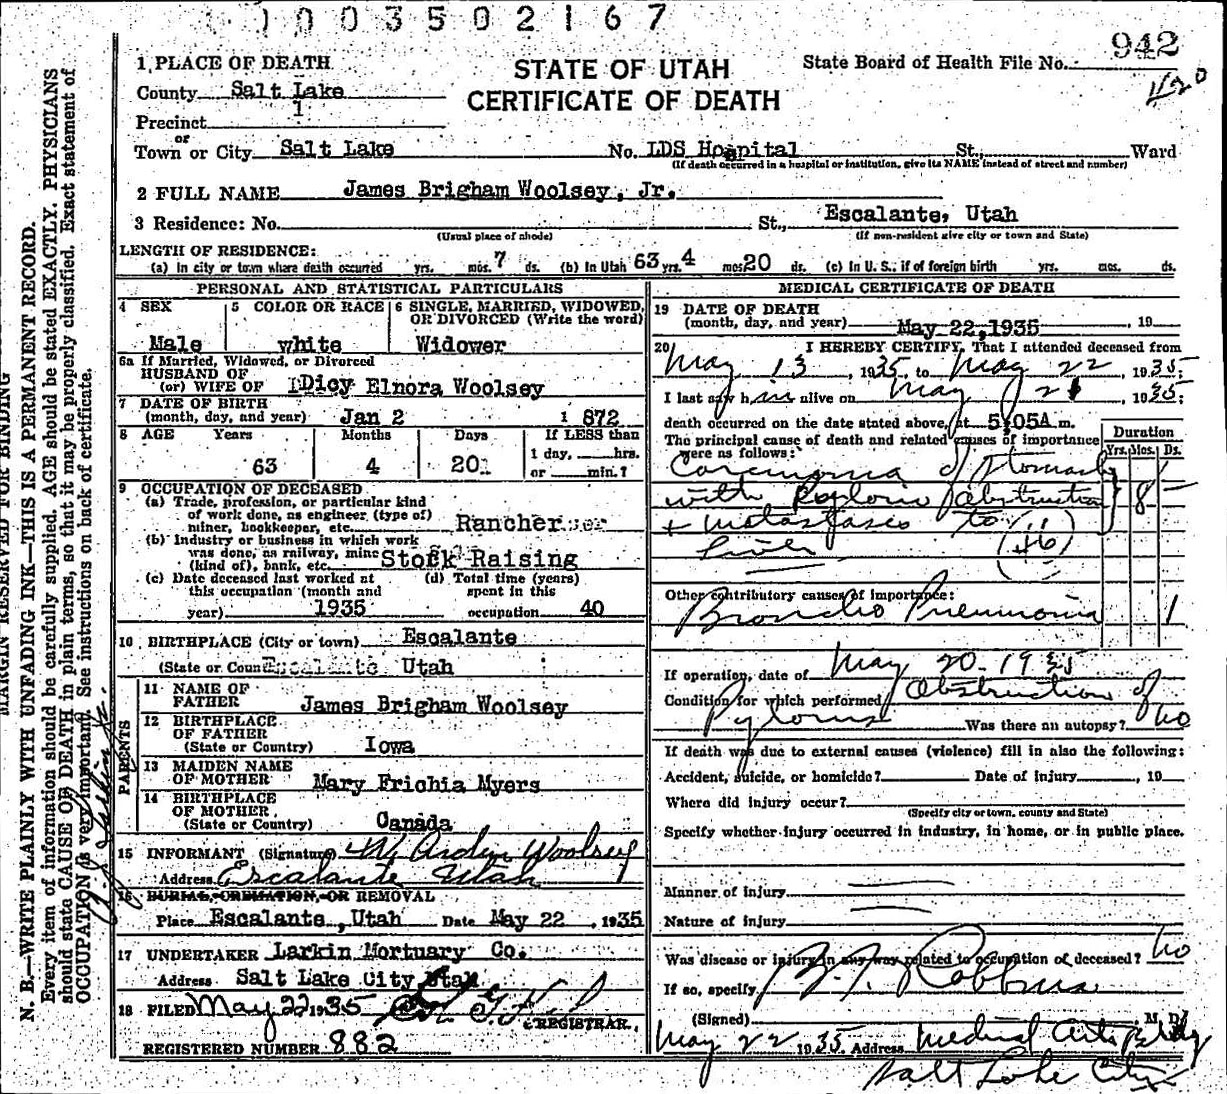 1003502167
942
1 PLACE OF DEATH
STATE OF UTAH
State Board of Health File No.
County Salt Lake
CERTIFICATE OF DEATH
Precinct 1
or
Town or City Salt Lake No. LDS Hospital St., Ward
(If death occurred in a hospital or institution, give its NAME instead of street and number)
2 FULL NAME James Brigham Woolsey, Jr.
3 Residence: No. St., Escalante, Utah
(Usual place of abode) (If non-resident give city or town and State)
LENGTH OF RESIDENCE:
(a) In city or town where death occurred yrs. mos. 7 ds. (b) In Utah 63 yrs. 4 mos. 20 ds. (c) In U. S., if of foreign birth yrs. mos. ds.
PERSONAL AND STATISTICAL PARTICULARS
4 SEX 5 COLOR OR RACE 6 SINGLE, MARRIED, WIDOWED, OR DIVORCED (Write the word)
Male white Widower
6a If Married, Widowed, or Divorced
HUSBAND OF
(or) WIFE OF Dicy Elnora Woolsey
7 DATE OF BIRTH
(month, day, and year) Jan 2 1872
8 AGE Years Months Days If LESS than
1 day, hrs.
63 4 20 or min.?
9 OCCUPATION OF DECEASED
(a) Trade, profession, or particular kind
of work done, as engineer (type of)
miner, bookkeeper, etc. Rancher
(b) Industry or business in which work
was done, as railway, mine
(kind of), bank, etc. Stock Raising
(c) Date deceased last worked at (d) Total time (years)
this occupation (month and spent in this
year) 1935 occupation 40
10 BIRTHPLACE (City or town) Escalante
(State or Country) Utah
PARENTS
11 NAME OF
FATHER James Brigham Woolsey
12 BIRTHPLACE
OF FATHER
(State or Country) Iowa
13 MAIDEN NAME
OF MOTHER Mary Frichia Myers
14 BIRTHPLACE
OF MOTHER
(State or Country) Canada
15 INFORMANT (Signature) Arden Woolsey
Address Escalante Utah
16 BURIAL, CREMATION, OR REMOVAL
Place Escalante, Utah Date May 22, 1935
17 UNDERTAKER Larkin Mortuary Co.
Address Salt Lake City Utah
18 FILED May 22 1935
REGISTRAR.
REGISTERED NUMBER 882
MEDICAL CERTIFICATE OF DEATH
19 DATE OF DEATH
(month, day, and year) May 22, 1935, 19
20 I HEREBY CERTIFY, That I attended deceased from
May 13, 1935, to May 22, 1935;
I last saw him alive on May 21, 1935;
death occurred on the date stated above, at 5:05A m.
The principal cause of death and related causes of importance
were as follows: Duration
Yrs. Mos. Ds.
Carcinoma of Stomach
with Pyloric Obstruction 8 —
+ Metastasis to
Liver (46)
Other contributory causes of importance:
Broncho Pneumonia 1
If operation, date of May 20-1935
Condition for which performed Obstruction of
Pylorus Was there an autopsy? No
If death was due to external causes (violence) fill in also the following:
Accident, suicide, or homicide? Date of injury, 19
Where did injury occur?
(Specify city or town, county and State)
Specify whether injury occurred in industry, in home, or in public place.
Manner of injury
Nature of injury
Was disease or injury in any way related to occupation of deceased? No
If so, specify
(Signed) Robbins M. D.
May 22 1935. Address Medical Arts Bldg
Salt Lake City
MARGIN RESERVED FOR BINDING
N. B.—WRITE PLAINLY WITH UNFADING INK—THIS IS A PERMANENT RECORD.
Every item of information should be carefully supplied. AGE should be stated EXACTLY. PHYSICIANS
should state CAUSE OF DEATH in plain terms, so that it may be properly classified. Exact statement of
OCCUPATION is very important. See instructions on back of certificate.